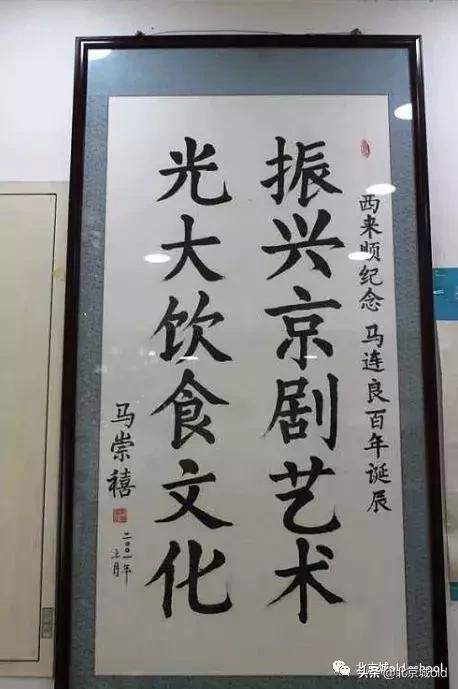 西来顺纪念 马连良百年诞辰
振兴京剧艺术
光大饮食文化
马崇禧
二〇〇一年
头条@北京城old